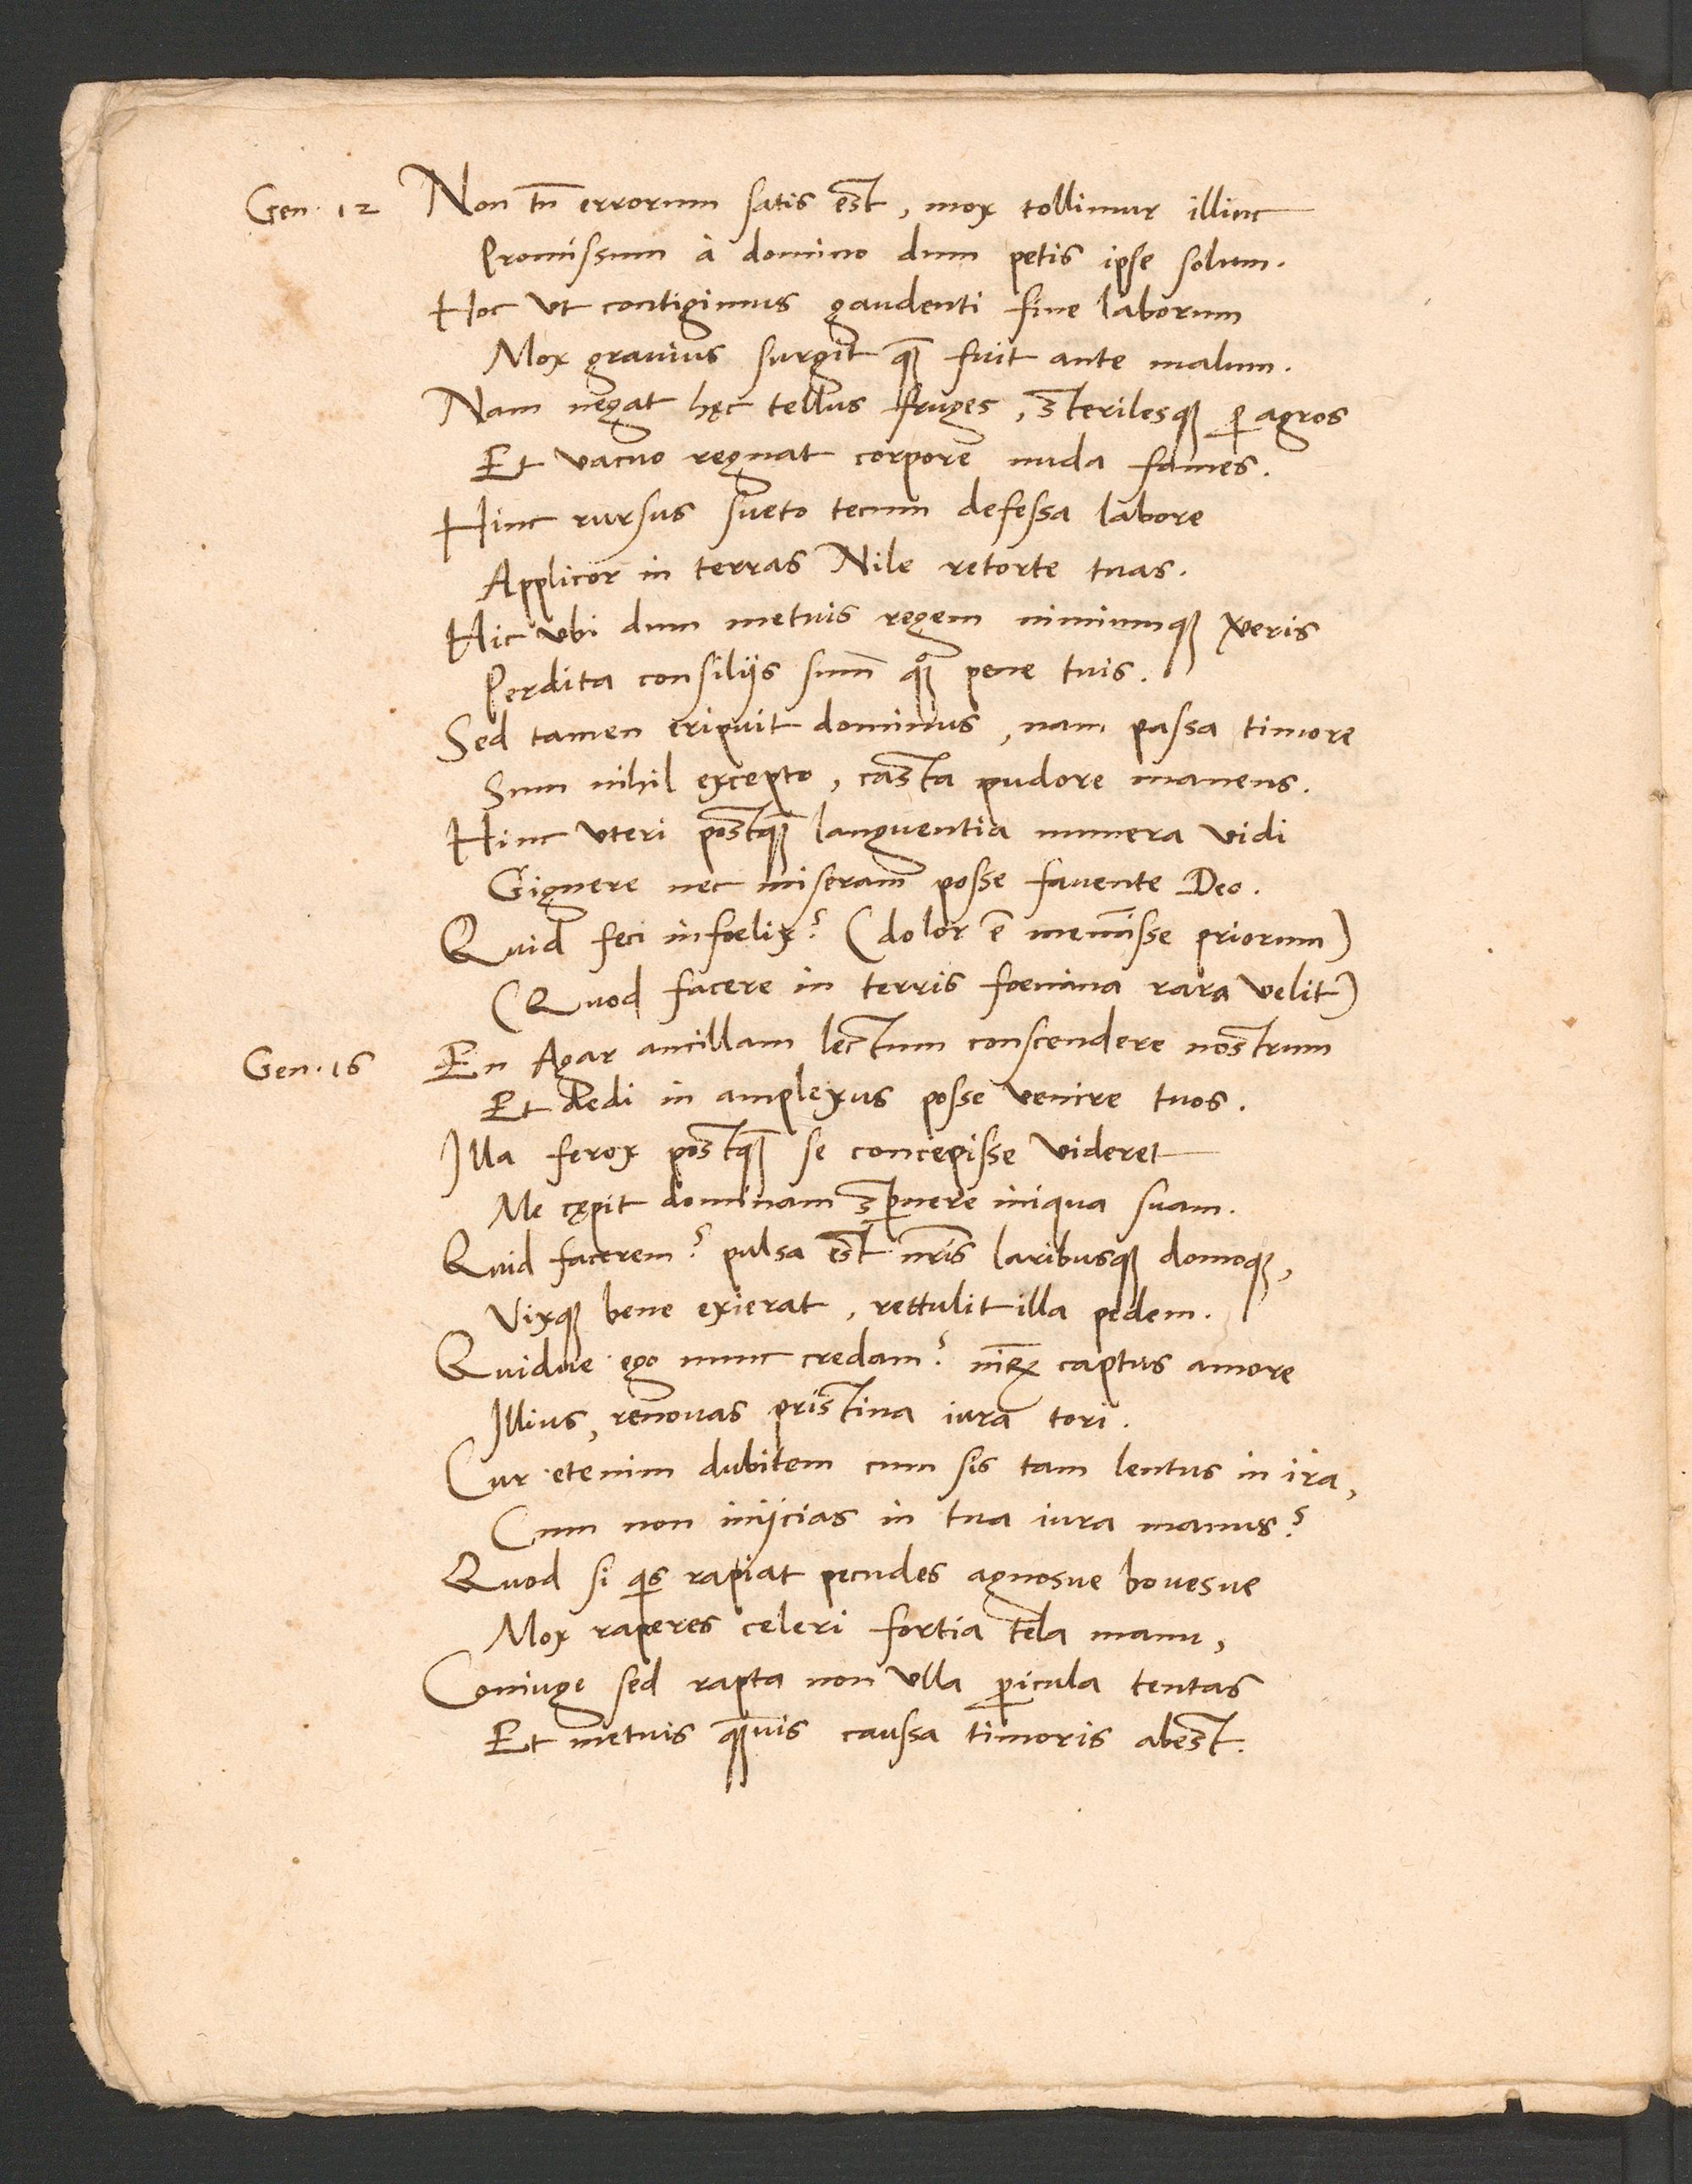 Gen. 12 Non tn̄ errorum satis est, mox tollimur illinc
Promissum à domino dum petis ipse solum.
Hoc vt contigimus gaudenti fine laborum
Mox grauius surgit quā fuit ante malum.
Nam negat hęc tellus fruges, sterilesque ꝑ agros
Et vacuo regnat corpore nuda fames.
Hinc rursus sueto tecum defessa labore
Applicor in terras Nile retorte tuas.
Hic vbi dum metuis regem nimiumque vereris
Perdita consilijs sum quoque pene tuis.
Sed tamen eripuit dominus, nam passa timore
Sum nihil excepto, casta pudore manens.
Hinc vteri postquā languentia munera vidi
Gignere nec miseram posse fauente Deo.
Quid feci infoelix? (dolor ē meminisse priorum)
(Quod facere in terris foemina rara velit)
Gen. 16 En Agar ancillam lectum conscendere nostrum
Et dedi in amplexus posse venire tuos.
Illa ferox postquā se concepisse videret
Me cępit dominam sꝑnere iniqua suam.
Quid facerem? pulsa est nr̄is laribusque domoque,
Vixque bene exierat, rettulit illa pedem.
Quidue ego nunc credam? captus amore
Illius, renouas pristina iura tori.
Cur etenim dubitem cum sis tam lentus in ira,
Cum non inijcias in tua iura manus?
Quod si qis rapiat pecudes agnosue bouesue
Mox raperes celeri fortia tela manu,
Coniuge sed rapta non vlla ꝑicula tentas
Et metuis quāuis caussa timoris abest.